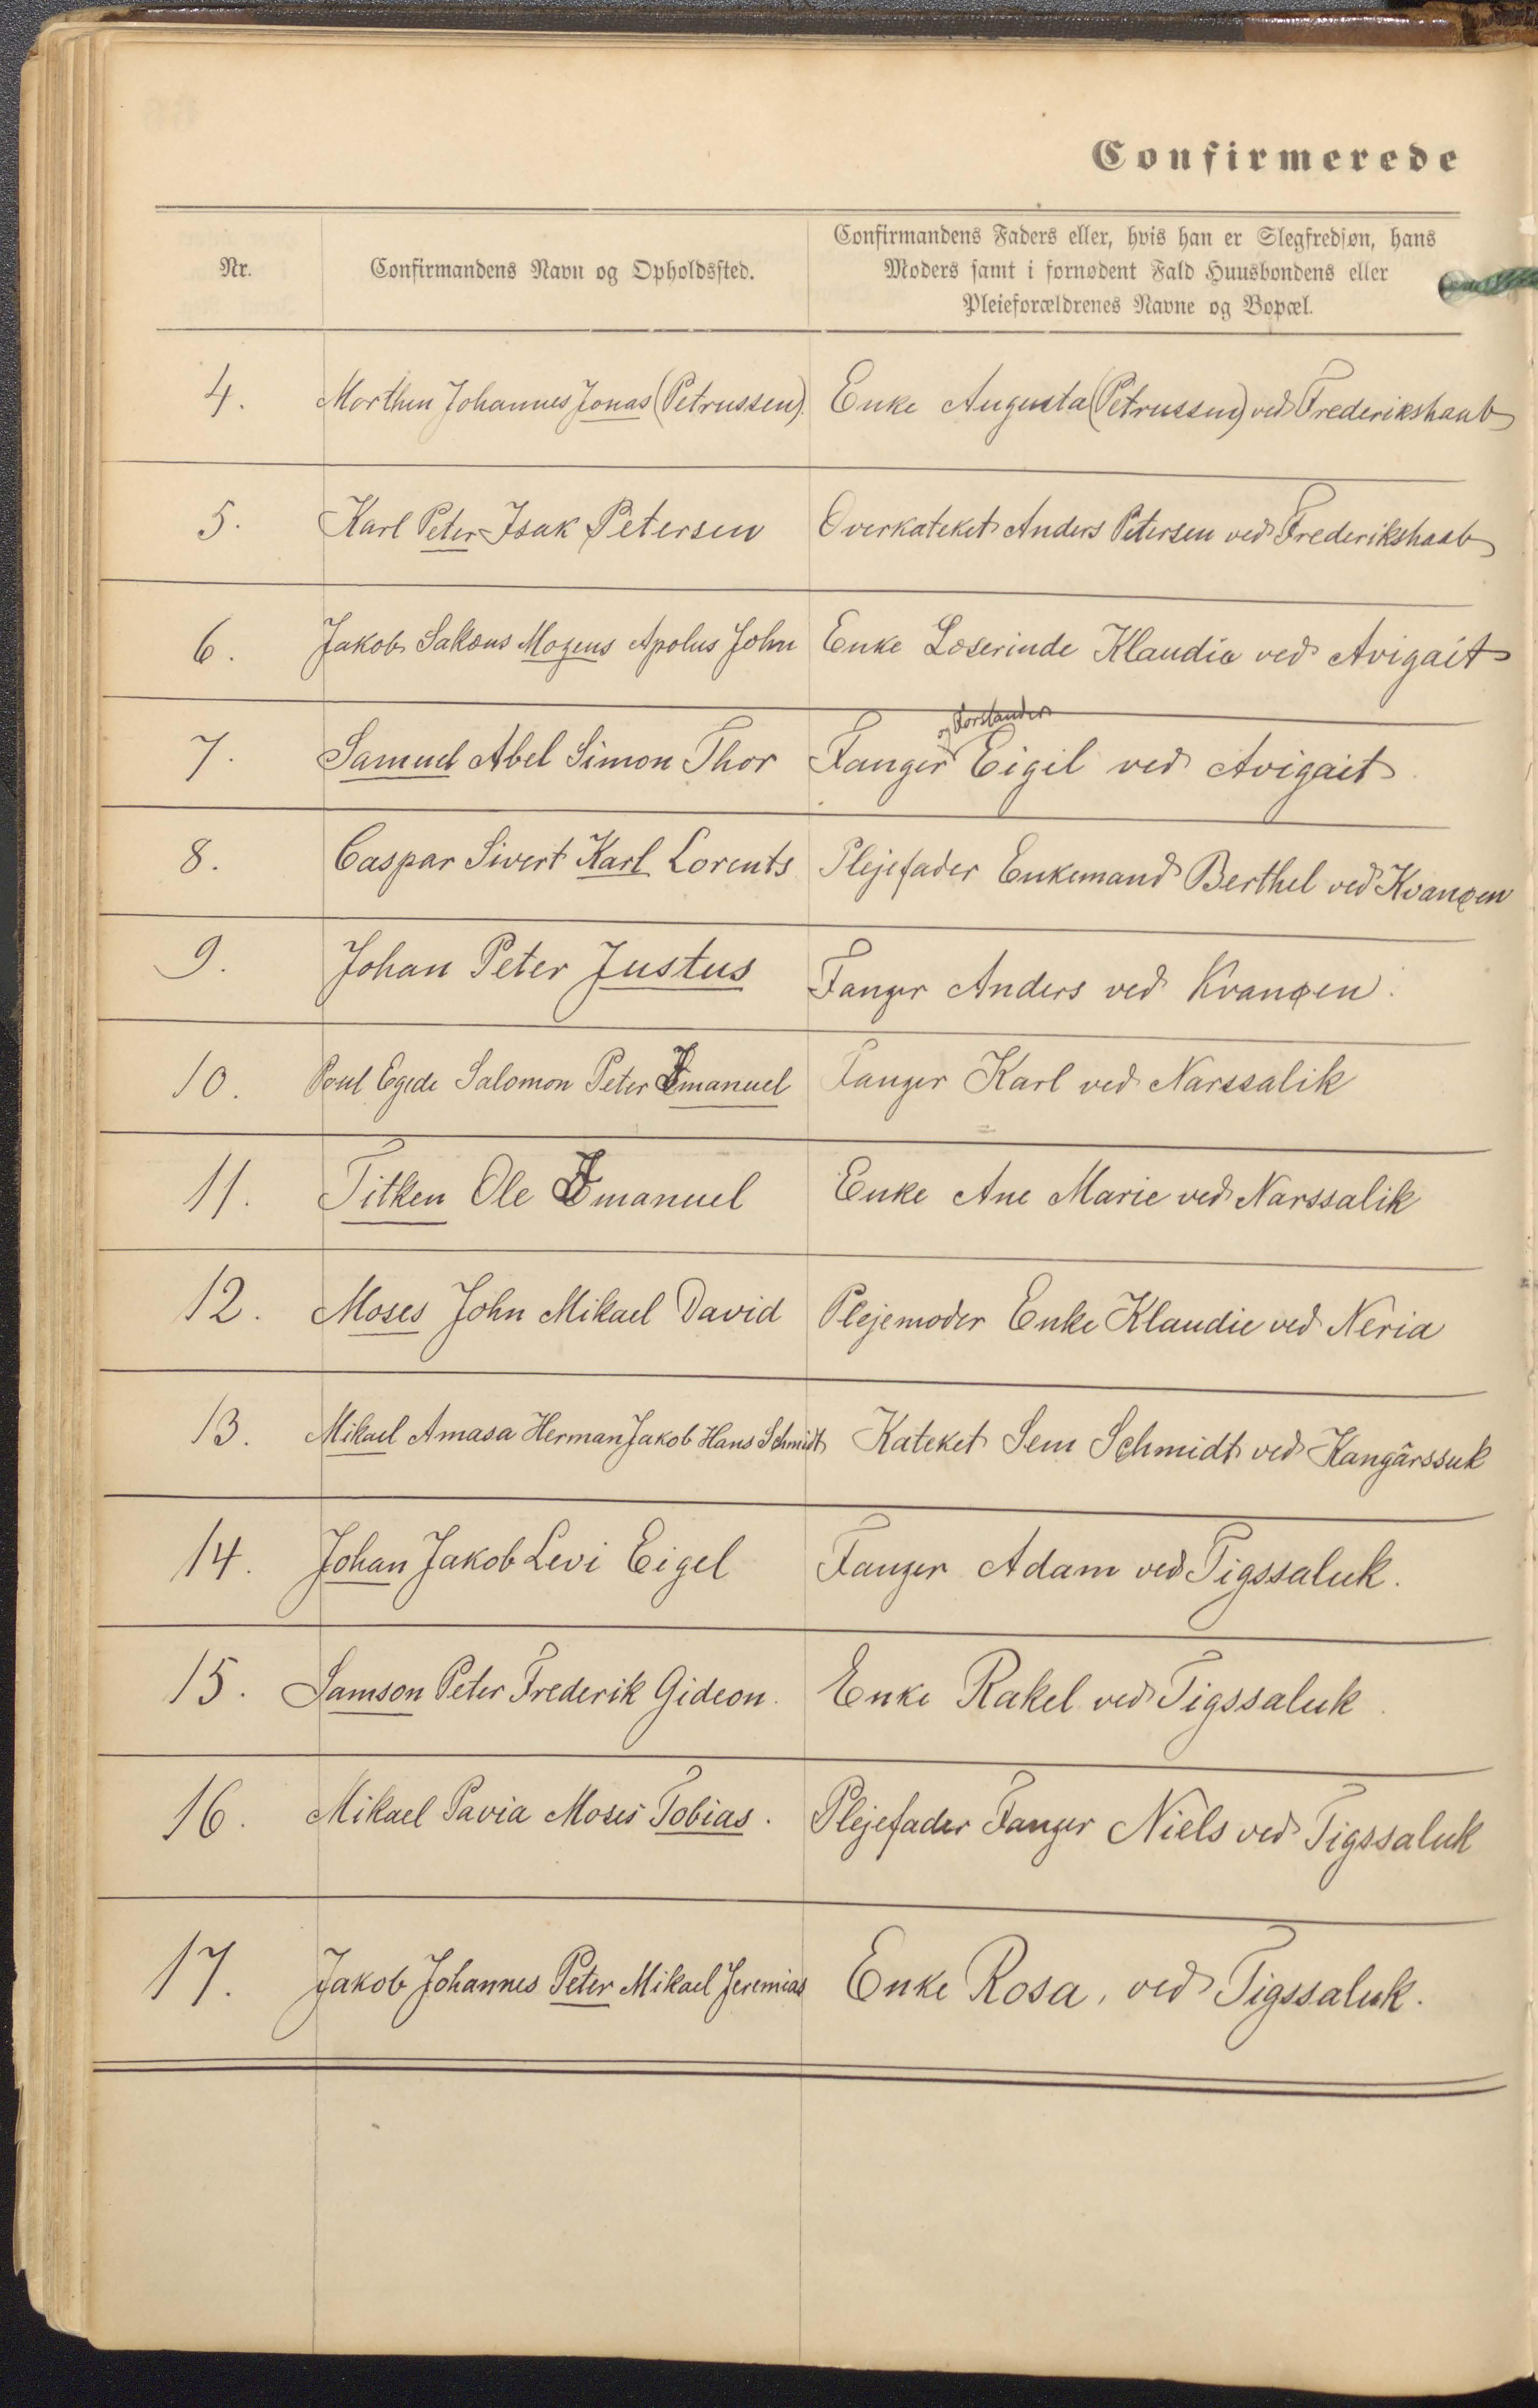 Confirmerede
Nr.
Confirmandens Navn og Opholdssted.
Confirmandens Faders eller, hvis han er Slegfredsøn, hans
Moders samt i fornødent Fald Huusbondens eller
Pleieforældrenes Navne og Bopæl.
4. Morthen Johannes Jonas (Petrussen). Enke Augusta (Petrussen) ved Frederikshaab
5. Karl Peter Isak Petersen Overkateket Anders Petersen ved Frederikshaab
6. Jakob Sakæus Mogens Apolus John Enke Læserinde Klaudia ved Avigait
og Forstander
7. Samuel Abel Simon Thor Fanger Eigil ved Avigait
8. Caspar Sivert Karl Lorents Plejefader Enkemand Berthel ved Kvanøen
9. Johan Peter Justus Fanger Anders ved Kvanøen.
10. Poul Egede Salomon Peter Imanuel Fanger Karl ved Narssalik
11. Titken Ole Imanuel Enke Ane Marie ved Narssalik
12. Moses John Mikael David Plejemoder Enke Klaudie ved Neria
13. Mikael Amasa Herman Jakob Hans Schmidt Kateket Sem Schmidt ved Kangârssuk
14. Johan Jakob Levi Eigel Fanger Adam ved Tigssaluk.
15. Samson Peter Frederik Gideon. Enke Rakel ved Tigssaluk.
16. Mikael Pavia Moses Tobias. Plejefader Fanger Niels ved Tigssaluk
17. Jakob Johannes Peter Mikael Jeremias Enke Rosa, ved Tigssaluk.